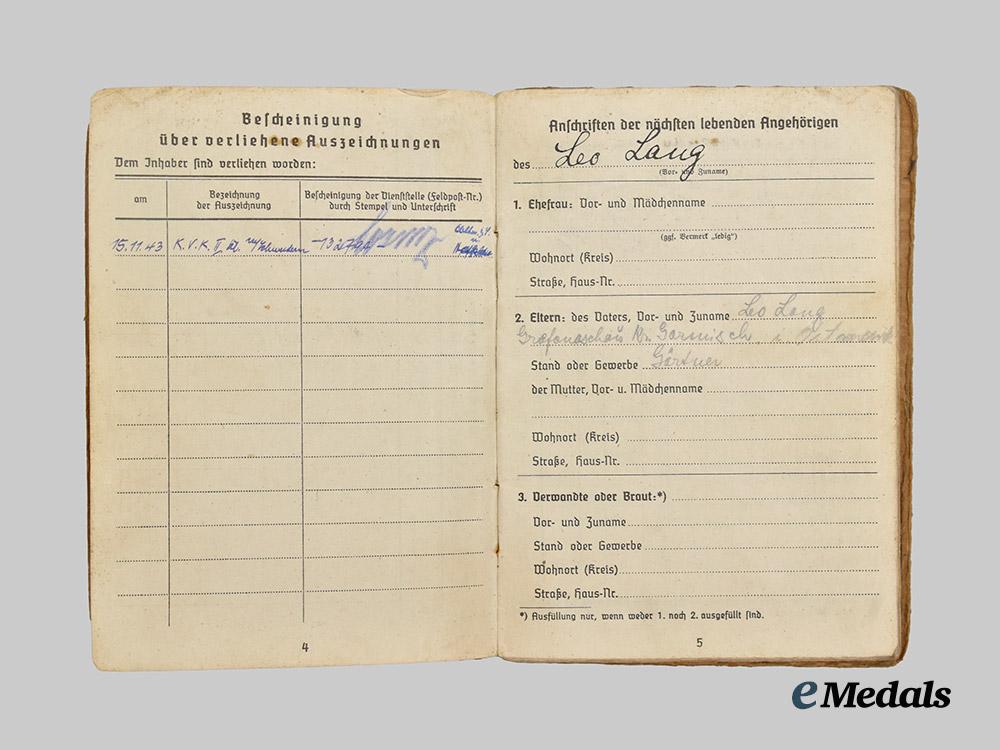 Bescheinigung
über verliehene Auszeichnungen
Dem Inhaber sind verliehen worden:
am
Bezeichnung
der Auszeichnung
Bescheinigung der Dienststelle (Feldpost-Nr.)
durch Stempel und Unterschrift
15.11.43 K.V.K. II. Kl. m/Schwertern
4
Anschriften der nächsten lebenden Angehörigen
des Leo Lang
(Vor- und Zuname)
1. Ehefrau: Vor- und Mädchenname
(ggf. Vermerk „ledig")
Wohnort (Kreis)
Straße, Haus-Nr.
2. Eltern: des Vaters, Vor- und Zuname Leo Lang
Grafenaschau Kr. Garmisch
Stand oder Gewerbe Gärtner
der Mutter, Vor- u. Mädchenname
Wohnort (Kreis)
Straße, Haus-Nr.
3. Verwandte oder Braut:*)
Vor- und Zuname
Stand oder Gewerbe
Wohnort (Kreis)
Straße, Haus-Nr.
*) Ausfüllung nur, wenn weder 1. noch 2. ausgefüllt sind.
5
eMedals